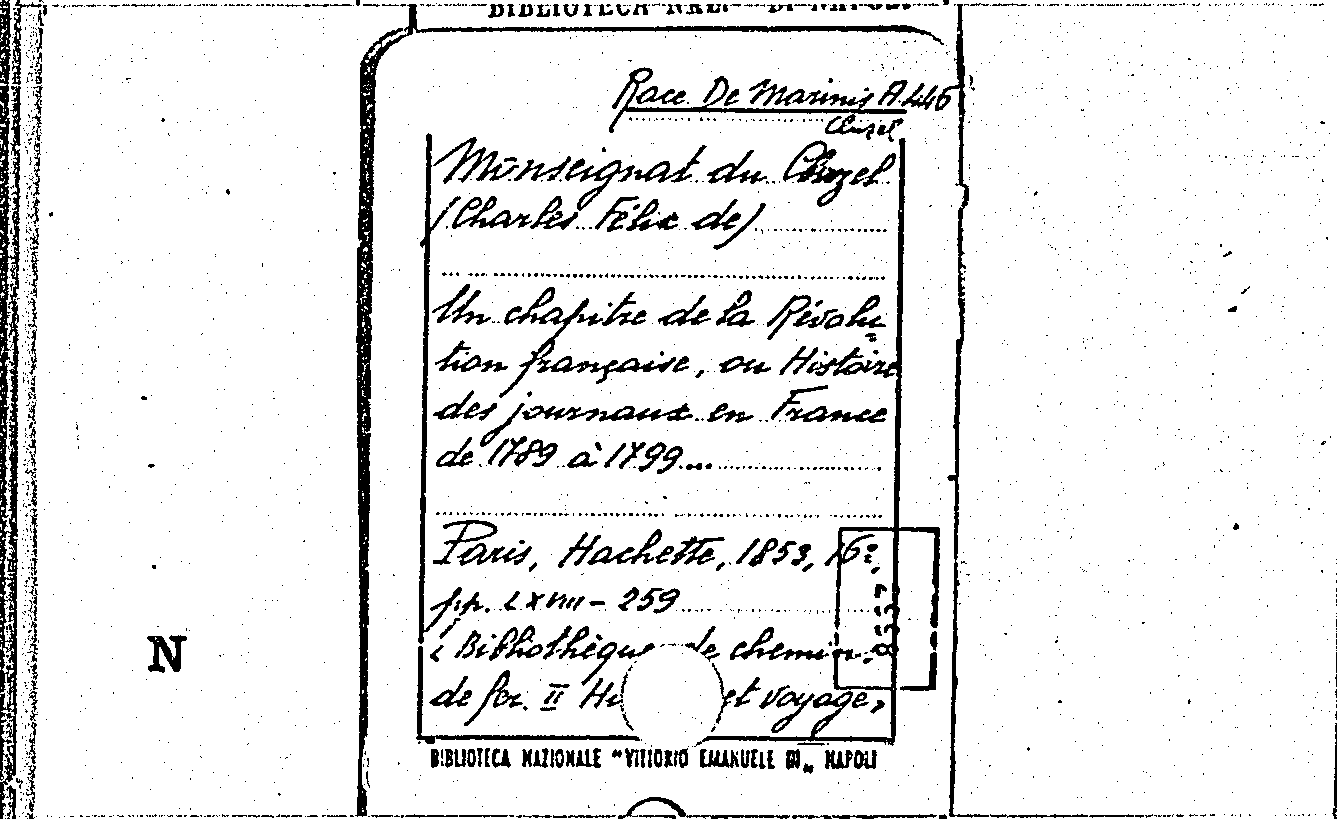 BIBLIOTECA NAZ. DI NAPOLI
Race. De Marinis A.446
Cluzel
Monseignat du Cluzel
(Charles Félix de)
Un chapitre de la Révolu=
tion française, ou Histoire
des journaux en France
de 1789 à 1799...
Paris, Hachette, 1853, 16º,
pp. LXVIII - 259
« Bibliothèque de chemin.
de fer. II et voyage»
BIBLIOTECA NAZIONALE "VITTORIO EMANUELE III„ NAPOLI
N